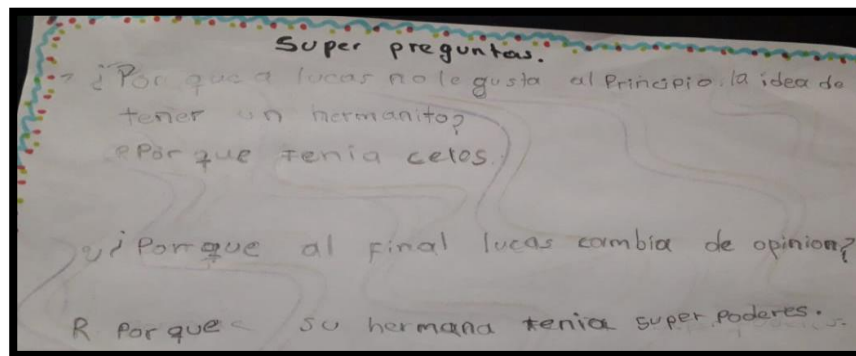 Super preguntas.
¿Por que a lucas no le gusta al Principio. la idea de
tener un hermanito?
R Por que tenia celos.
¿Porque al final lucas cambia de opinion?
R Porque su hermana tenia super poderes.